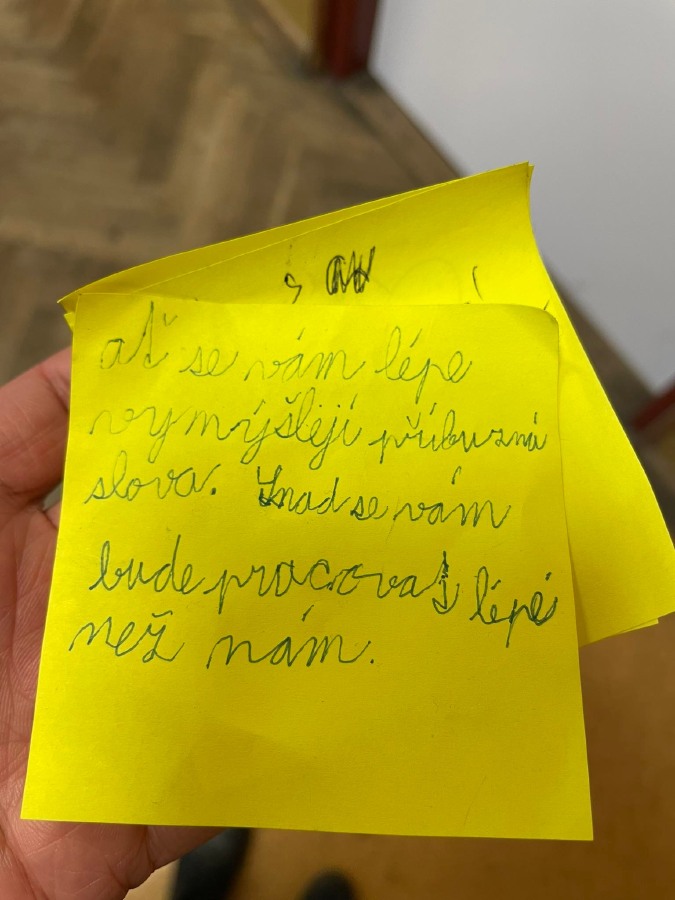 ať se vám lépe
vymýšlejí příbuzná
slova. Snad se vám
bude pracovat lépe
než nám.